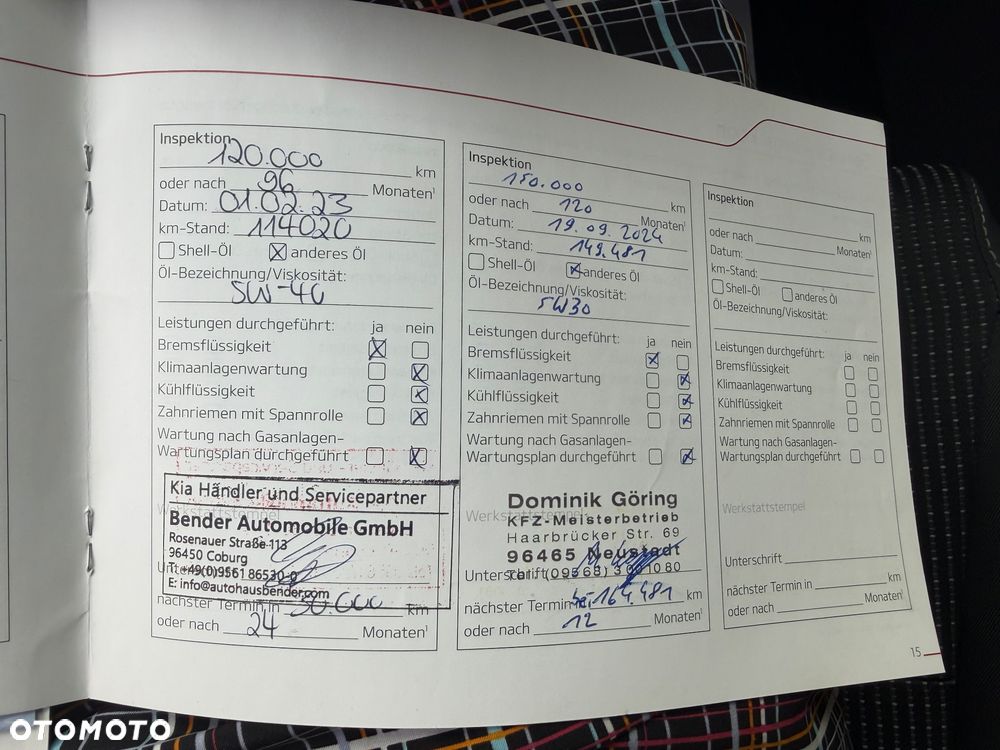 Inspektion
120.000 km
oder nach 96 Monaten¹
Datum: 01.02.23
km-Stand: 114020
Shell-Öl anderes Öl
Öl-Bezeichnung/Viskosität:
5W-40
Leistungen durchgeführt: ja nein
Bremsflüssigkeit
Klimaanlagenwartung
Kühlflüssigkeit
Zahnriemen mit Spannrolle
Wartung nach Gasanlagen-
Wartungsplan durchgeführt
Kia Händler und Servicepartner
Bender Automobile GmbH
Rosenauer Straße 113
96450 Coburg
T: +49(0)9561 86530-0
E: info@autohausbender.com
nächster Termin in 30.000 km
oder nach 24 Monaten¹
Inspektion
150.000 km
oder nach 120 Monaten¹
Datum: 19.09.2024
km-Stand: 149.481
Shell-Öl anderes Öl
Öl-Bezeichnung/Viskosität:
5W30
Leistungen durchgeführt: ja nein
Bremsflüssigkeit
Klimaanlagenwartung
Kühlflüssigkeit
Zahnriemen mit Spannrolle
Wartung nach Gasanlagen-
Wartungsplan durchgeführt
Werkstattstempel
Dominik Göring
KFZ-Meisterbetrieb
Haarbrücker Str. 69
96465 Neustadt
Tel. (09568) 3001080
Unterschrift
nächster Termin in 164.481 km
oder nach 12 Monaten¹
Inspektion
km
oder nach Monaten¹
Datum:
km-Stand:
Shell-Öl anderes Öl
Öl-Bezeichnung/Viskosität:
Leistungen durchgeführt: ja nein
Bremsflüssigkeit
Klimaanlagenwartung
Kühlflüssigkeit
Zahnriemen mit Spannrolle
Wartung nach Gasanlagen-
Wartungsplan durchgeführt
Werkstattstempel
Unterschrift
nächster Termin in km
oder nach Monaten¹
15
OTOMOTO